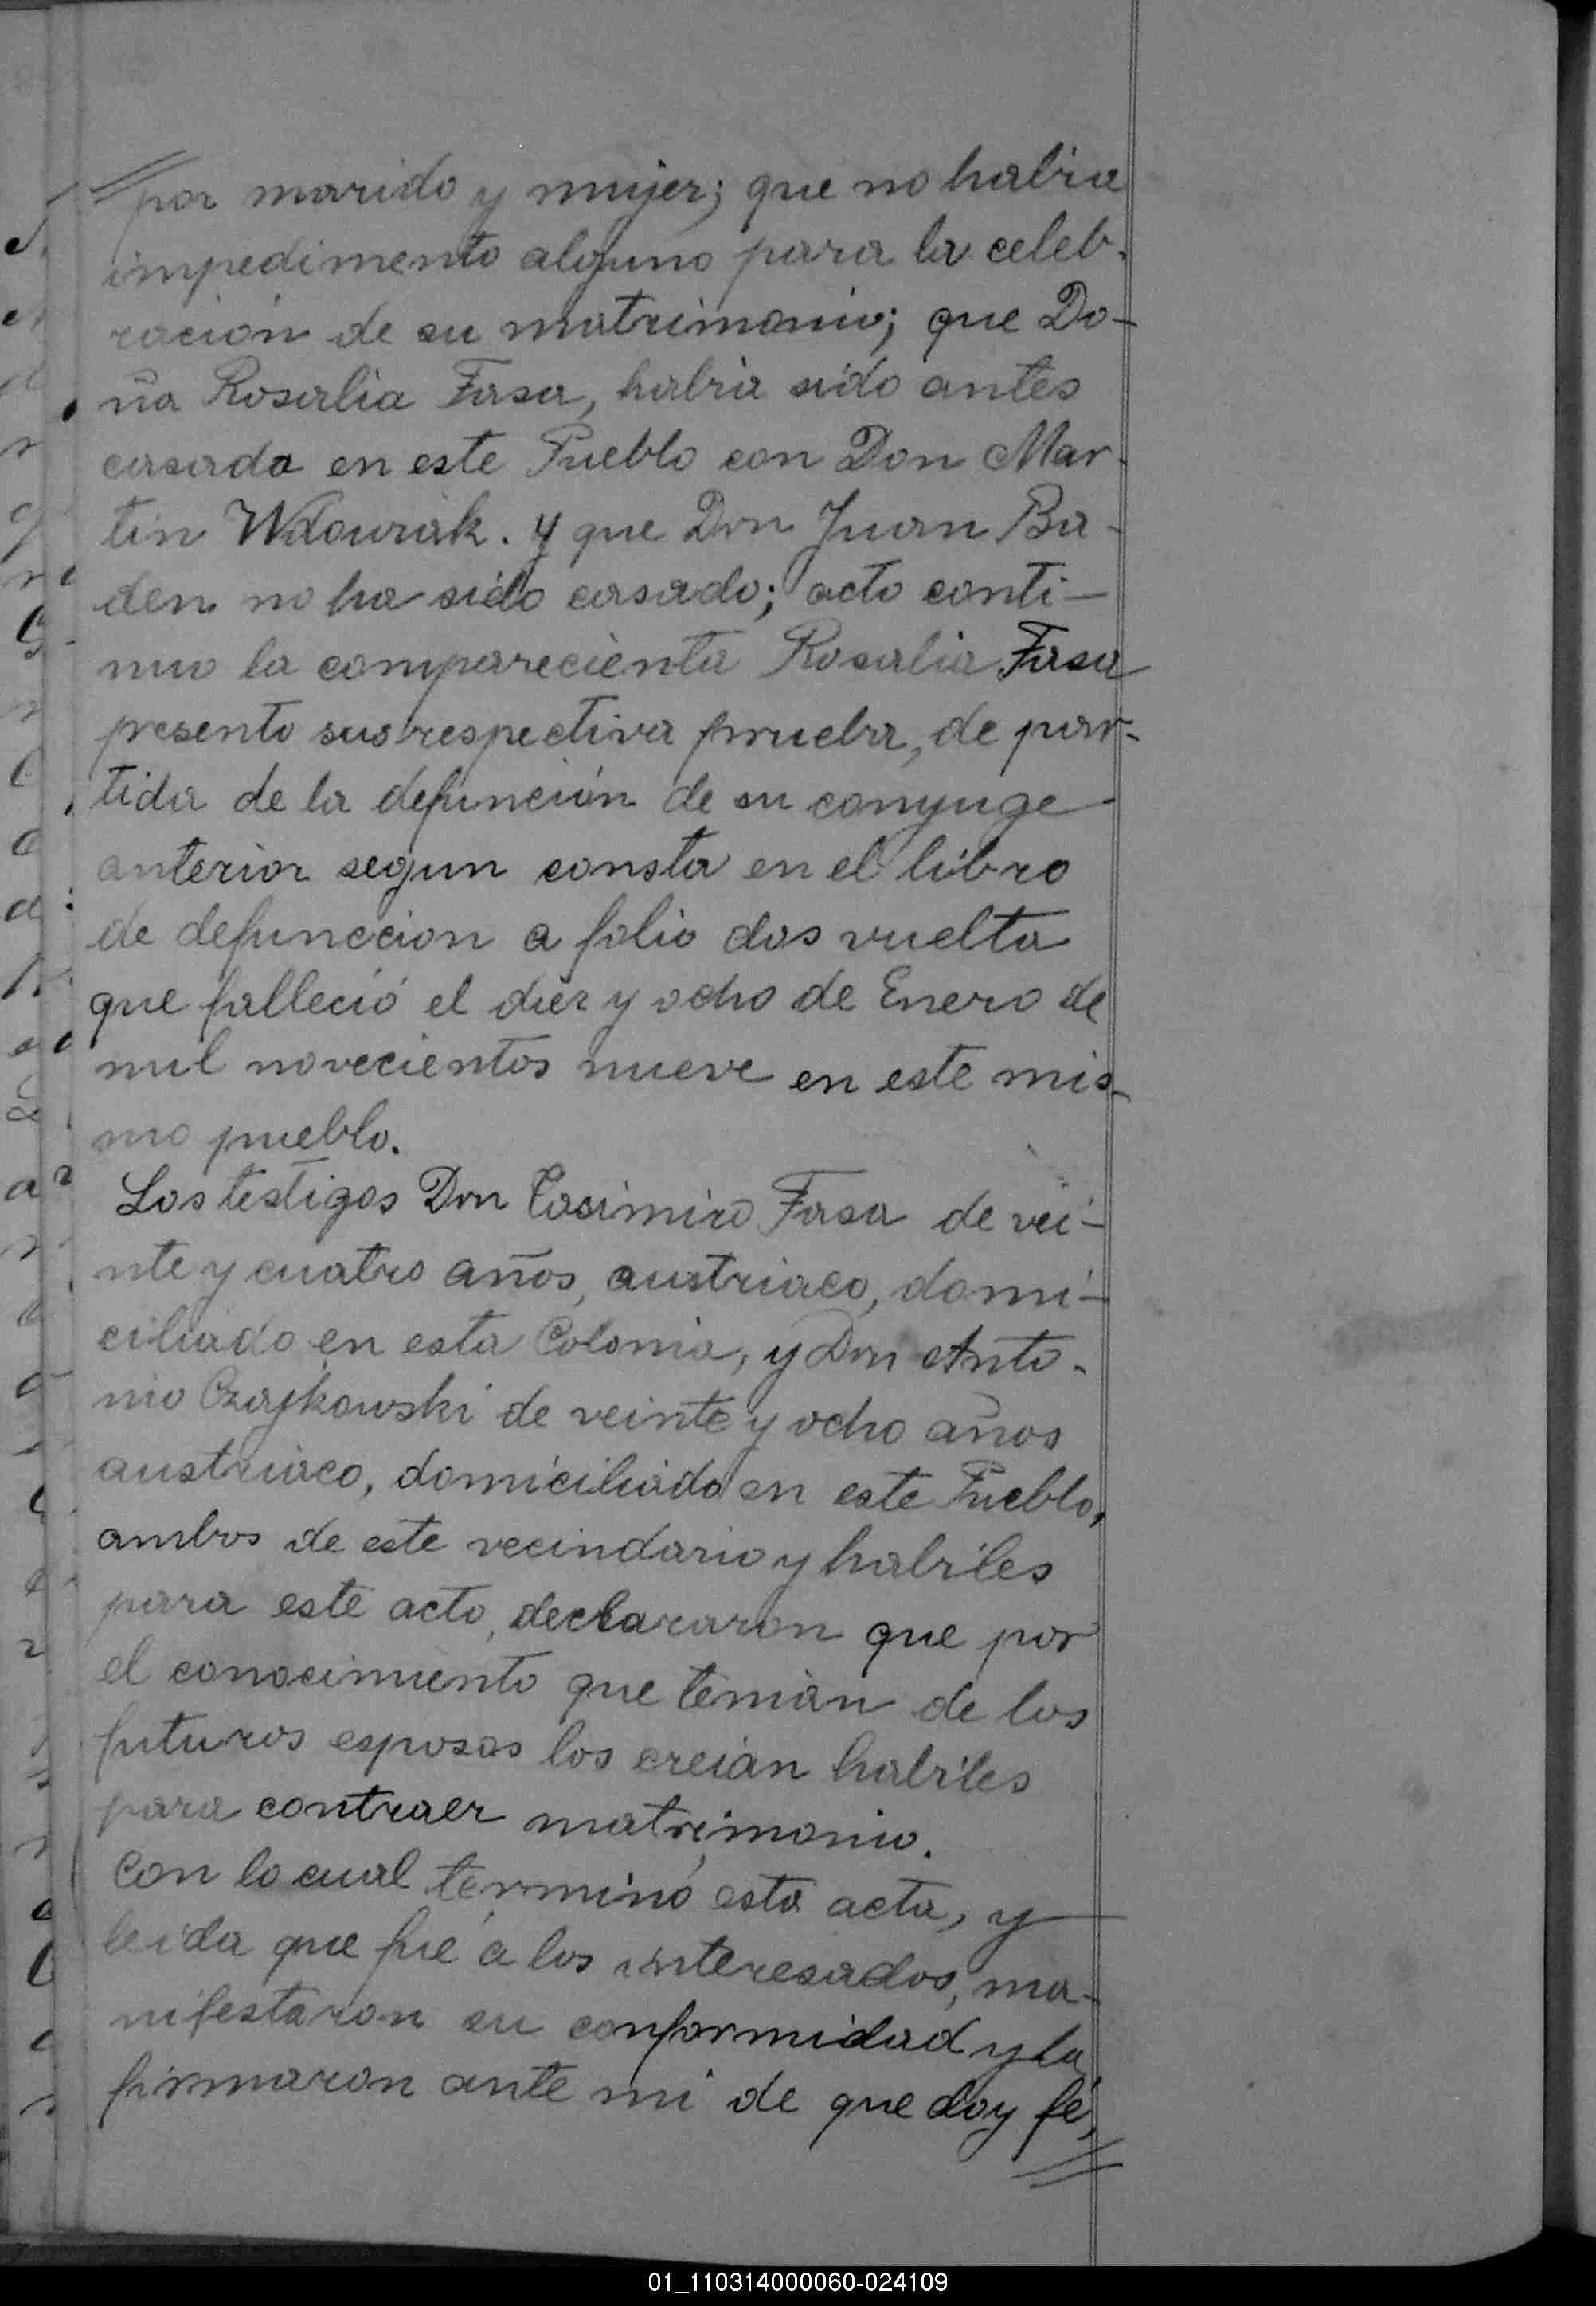 por marido y mujer; que no habia
impedimento alguno para la celeb-
ración de su matrimonio; que Do-
ña Rosalia Fasa, habia sido antes
casada en este Pueblo con Don Mar-
tin Wdowiak. Y que Don Juan Ba-
den no ha sido casado; acto conti-
nuo la comparecienta Rosalia Fasa
presento sus respectiva prueba, de par-
tida de la defunción de su conyuge
anterior segun consta en el libro
de defunccion a folio dos vuelta
que falleció el diez y ocho de Enero de
mil novecientos nueve en este mis-
mo pueblo.
Los testigos Don Casimiro Fasa de vei-
nte y cuatro años, austriaco, domi-
ciliado en esta Colonia, y Don Anto-
nio Czajkowski de veinte y ocho años
austriaco, domiciliado en este Pueblo,
ambos de este vecindario y habiles
para este acto, declararon que por
el conocimiento que tenian de los
futuros esposos los creian habiles
para contraer matrimonio.
Con lo cual terminó esta acta, y
leida que fué a los interesados, ma-
nifestaron su conformidad y la
firmaron ante mi de que doy fé,
01_110314000060-024109